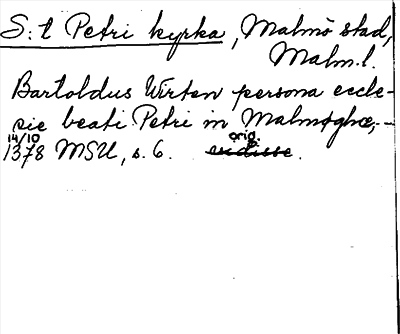 S:t Petri kyrka, Malmö stad,
Malm.l.
Bartoldus Wirten persona eccle-
sie beati Petri in Malmøghæ, --
14/10 1378 MSU, s. 6. orig.